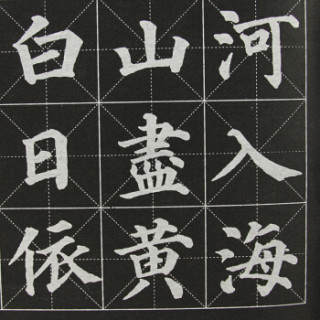 白日依
山盡黄
河入海